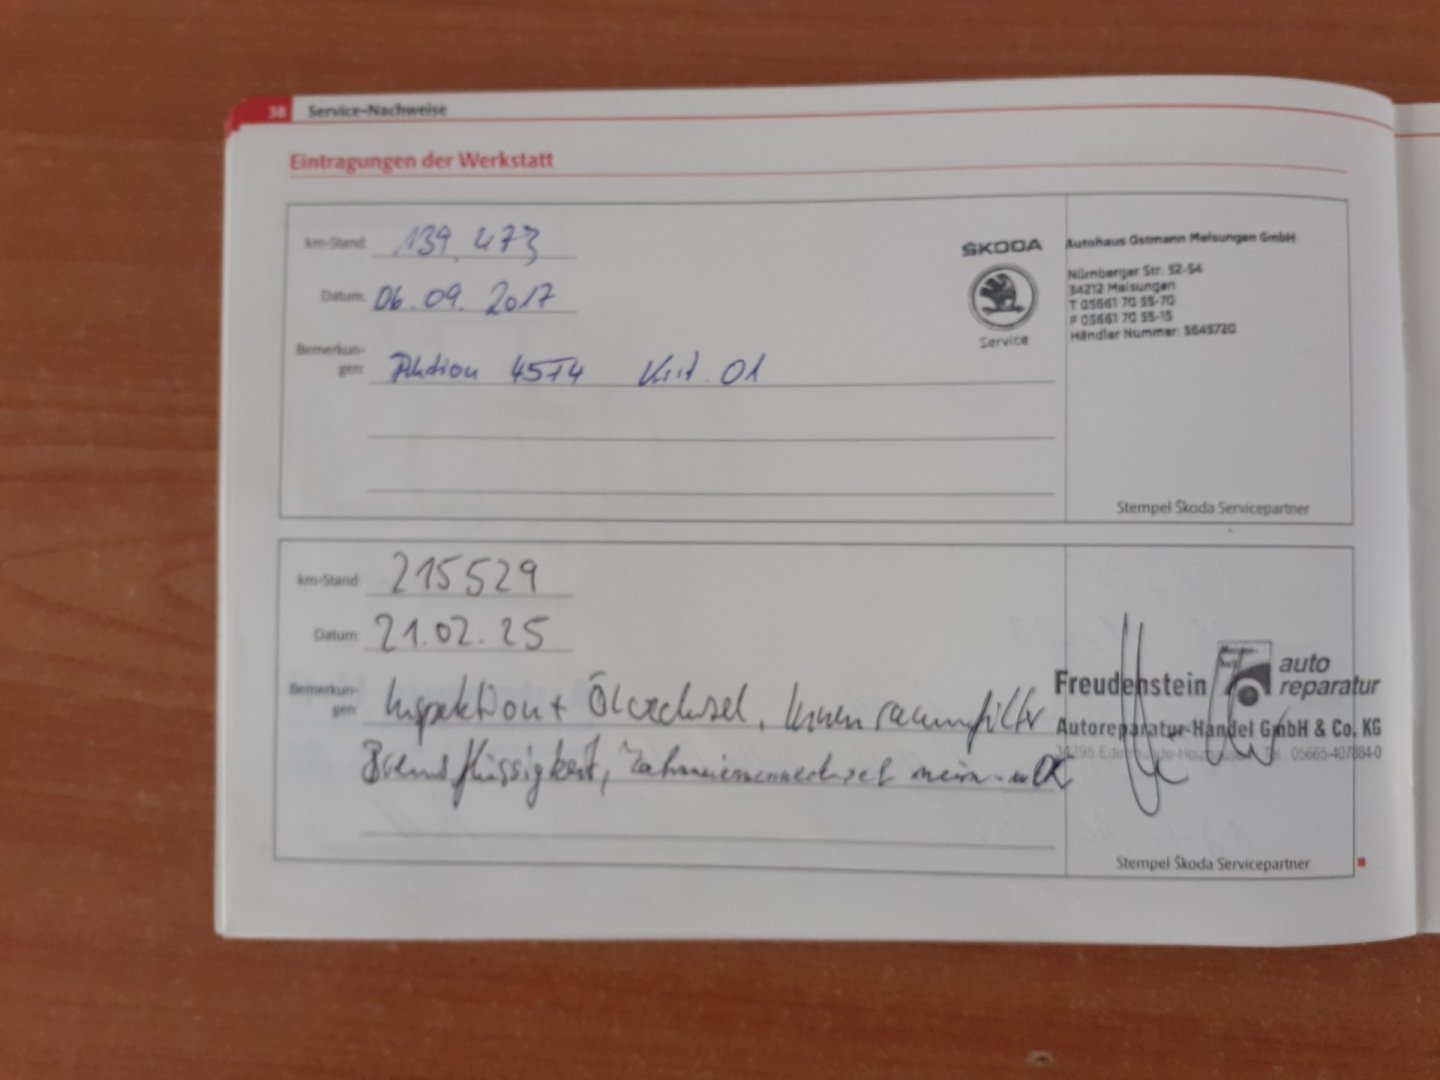 38 Service-Nachweise
Eintragungen der Werkstatt
km-Stand: 139.473
Datum: 06.09.2017
Bemerkun-
gen: Aktion 45T4 Krit. 01
ŠKODA
Service
Autohaus Ostmann Melsungen GmbH
Nürnberger Str. 52-54
34212 Melsungen
T 05661 70 55-70
F 05661 70 55-15
Händler Nummer:
Stempel Škoda Servicepartner
km-Stand: 215529
Datum: 21.02.25
Bemerkun-
gen: Inspektion + Ölwechsel, Innenraumfilter
Bremsflüssigkeit, Zahnriemenwechsel
Freudenstein auto
reparatur
Autoreparatur-Handel GmbH & Co. KG
34295 Tel.: 05665-407884-0
Stempel Škoda Servicepartner